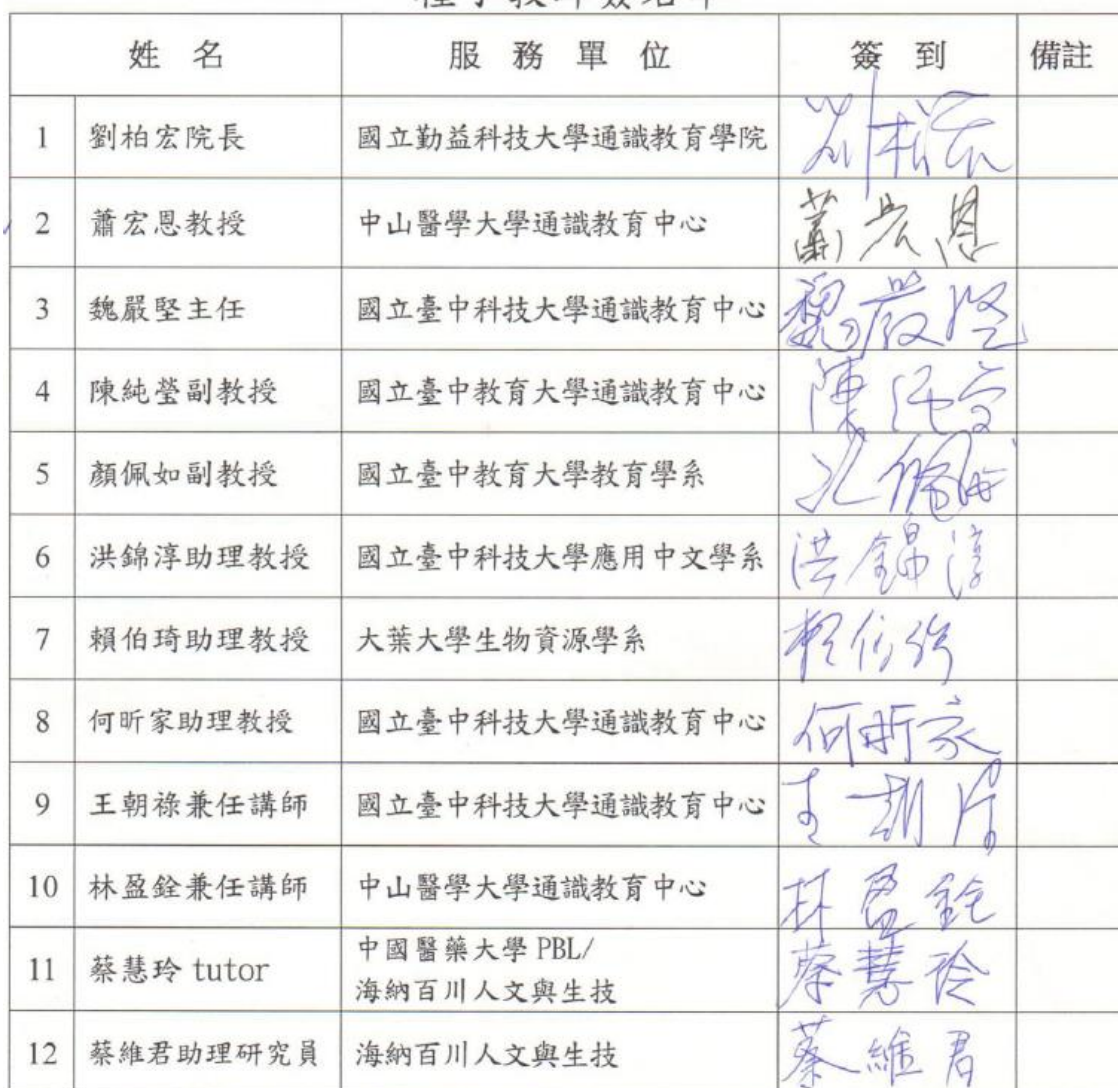 姓名 服務單位 簽到 備註
1 劉柏宏院長 國立勤益科技大學通識教育學院 劉柏宏
2 蕭宏恩教授 中山醫學大學通識教育中心 蕭宏恩
3 魏嚴堅主任 國立臺中科技大學通識教育中心 魏嚴堅
4 陳純瑩副教授 國立臺中教育大學通識教育中心 陳純瑩
5 顏佩如副教授 國立臺中教育大學教育學系
6 洪錦淳助理教授 國立臺中科技大學應用中文學系 洪錦淳
7 賴伯琦助理教授 大葉大學生物資源學系 賴伯琦
8 何昕家助理教授 國立臺中科技大學通識教育中心 何昕家
9 王朝祿兼任講師 國立臺中科技大學通識教育中心
10 林盈銓兼任講師 中山醫學大學通識教育中心 林盈銓
11 蔡慧玲 tutor 中國醫藥大學 PBL/
海納百川人文與生技 蔡慧玲
12 蔡維君助理研究員 海納百川人文與生技 蔡維君